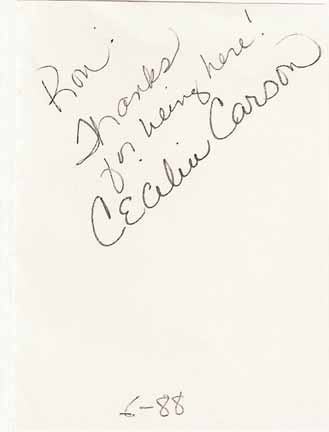 Ron:
Thanks
for being here!
Cecilia Carson
6-88